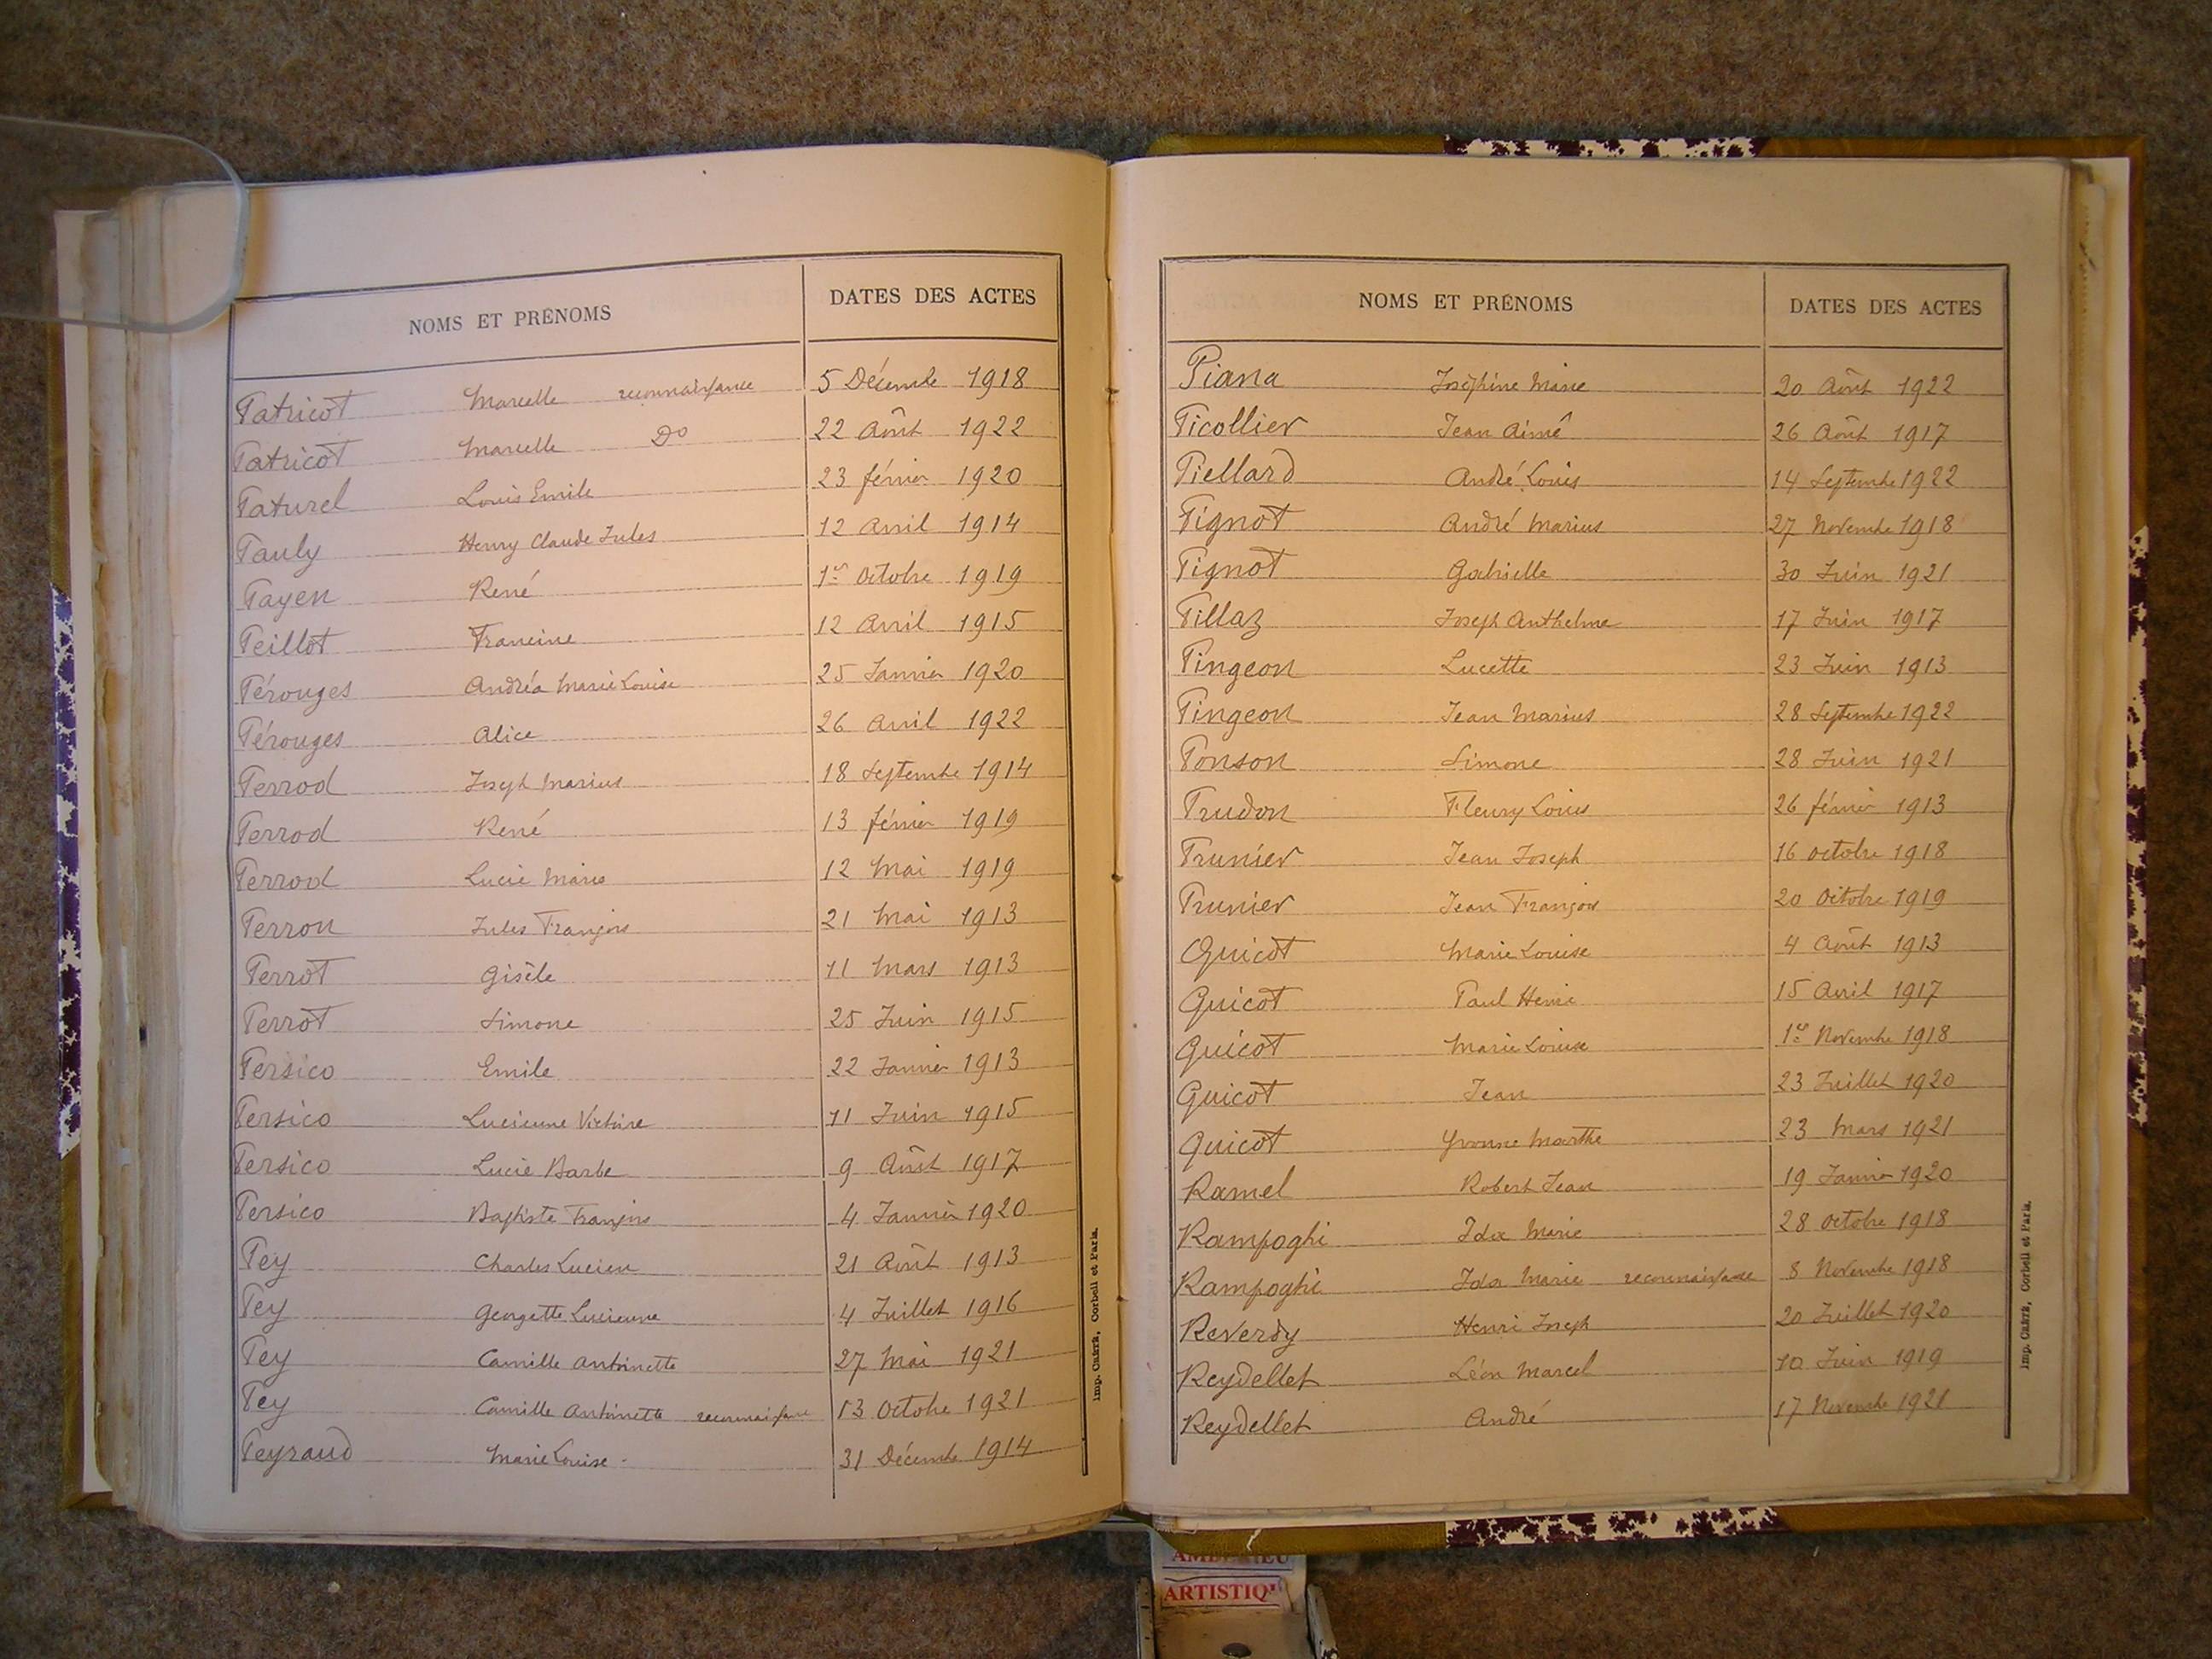 NOMS ET PRÉNOMS DATES DES ACTES
Patricot Marcelle reconnaissance 5 Décembre 1918
Patricot Marcelle Do 22 Août 1922
Paturel Louis Emile 23 février 1920
Pauly Henry Claude Jules 12 Avril 1914
Payen René 1er Octobre 1919
Peillot Francine 12 Avril 1915
Pérouges Andréa Marie Louise 25 Janvier 1920
Pérouges Alice 26 Avril 1922
Perrod Joseph Marius 18 Septembre 1914
Perrod René 13 février 1919
Perrod Lucie Marie 12 Mai 1919
Perron Jules François 21 Mai 1913
Perrot Gisèle 11 Mars 1913
Perrot Simone 25 Juin 1915
Persico Emile 22 Janvier 1913
Persico Lucienne Victoire 11 Juin 1915
Persico Lucie Barbe 9 Août 1917
Persico Baptiste François 4 Janvier 1920
Pey Charles Lucien 21 Août 1913
Pey Georgette Lucienne 4 Juillet 1916
Pey Camille Antoinette 27 Mai 1921
Pey Camille Antoinette reconnaissance 13 Octobre 1921
Peyraud Marie Louise 31 Décembre 1914
Imp. Cafra, Corbeil et Paris.
NOMS ET PRÉNOMS DATES DES ACTES
Piana Joséphine Marie 20 Août 1922
Picollier Jean Aimé 26 Août 1917
Piellard André Louis 14 Septembre 1922
Pignot André Marius 27 Novembre 1918
Pignot Gabrielle 30 Juin 1921
Pillaz Joseph Anthelme 17 Juin 1917
Pingeon Lucette 23 Juin 1913
Pingeon Jean Marius 28 Septembre 1922
Ponson Simone 28 Juin 1921
Prudon Fleury Louis 26 février 1913
Prunier Jean Joseph 16 Octobre 1918
Prunier Jean François 20 Octobre 1919
Quicot Marie Louise 4 Août 1913
Quicot Paul Henri 15 Avril 1917
Quicot Marie Louise 1er Novembre 1918
Quicot Jean 23 Juillet 1920
Quicot Yvonne Marthe 23 Mars 1921
Ramel Robert Jean 19 Janvier 1920
Rampoghi Ida Marie 28 Octobre 1918
Rampoghi Ida Marie reconnaissance 8 Novembre 1918
Reverdy Henri Joseph 20 Juillet 1920
Reydellet Léon Marcel 10 Juin 1919
Reydellet André 17 Novembre 1921
Imp. Cafra, Corbeil et Paris.